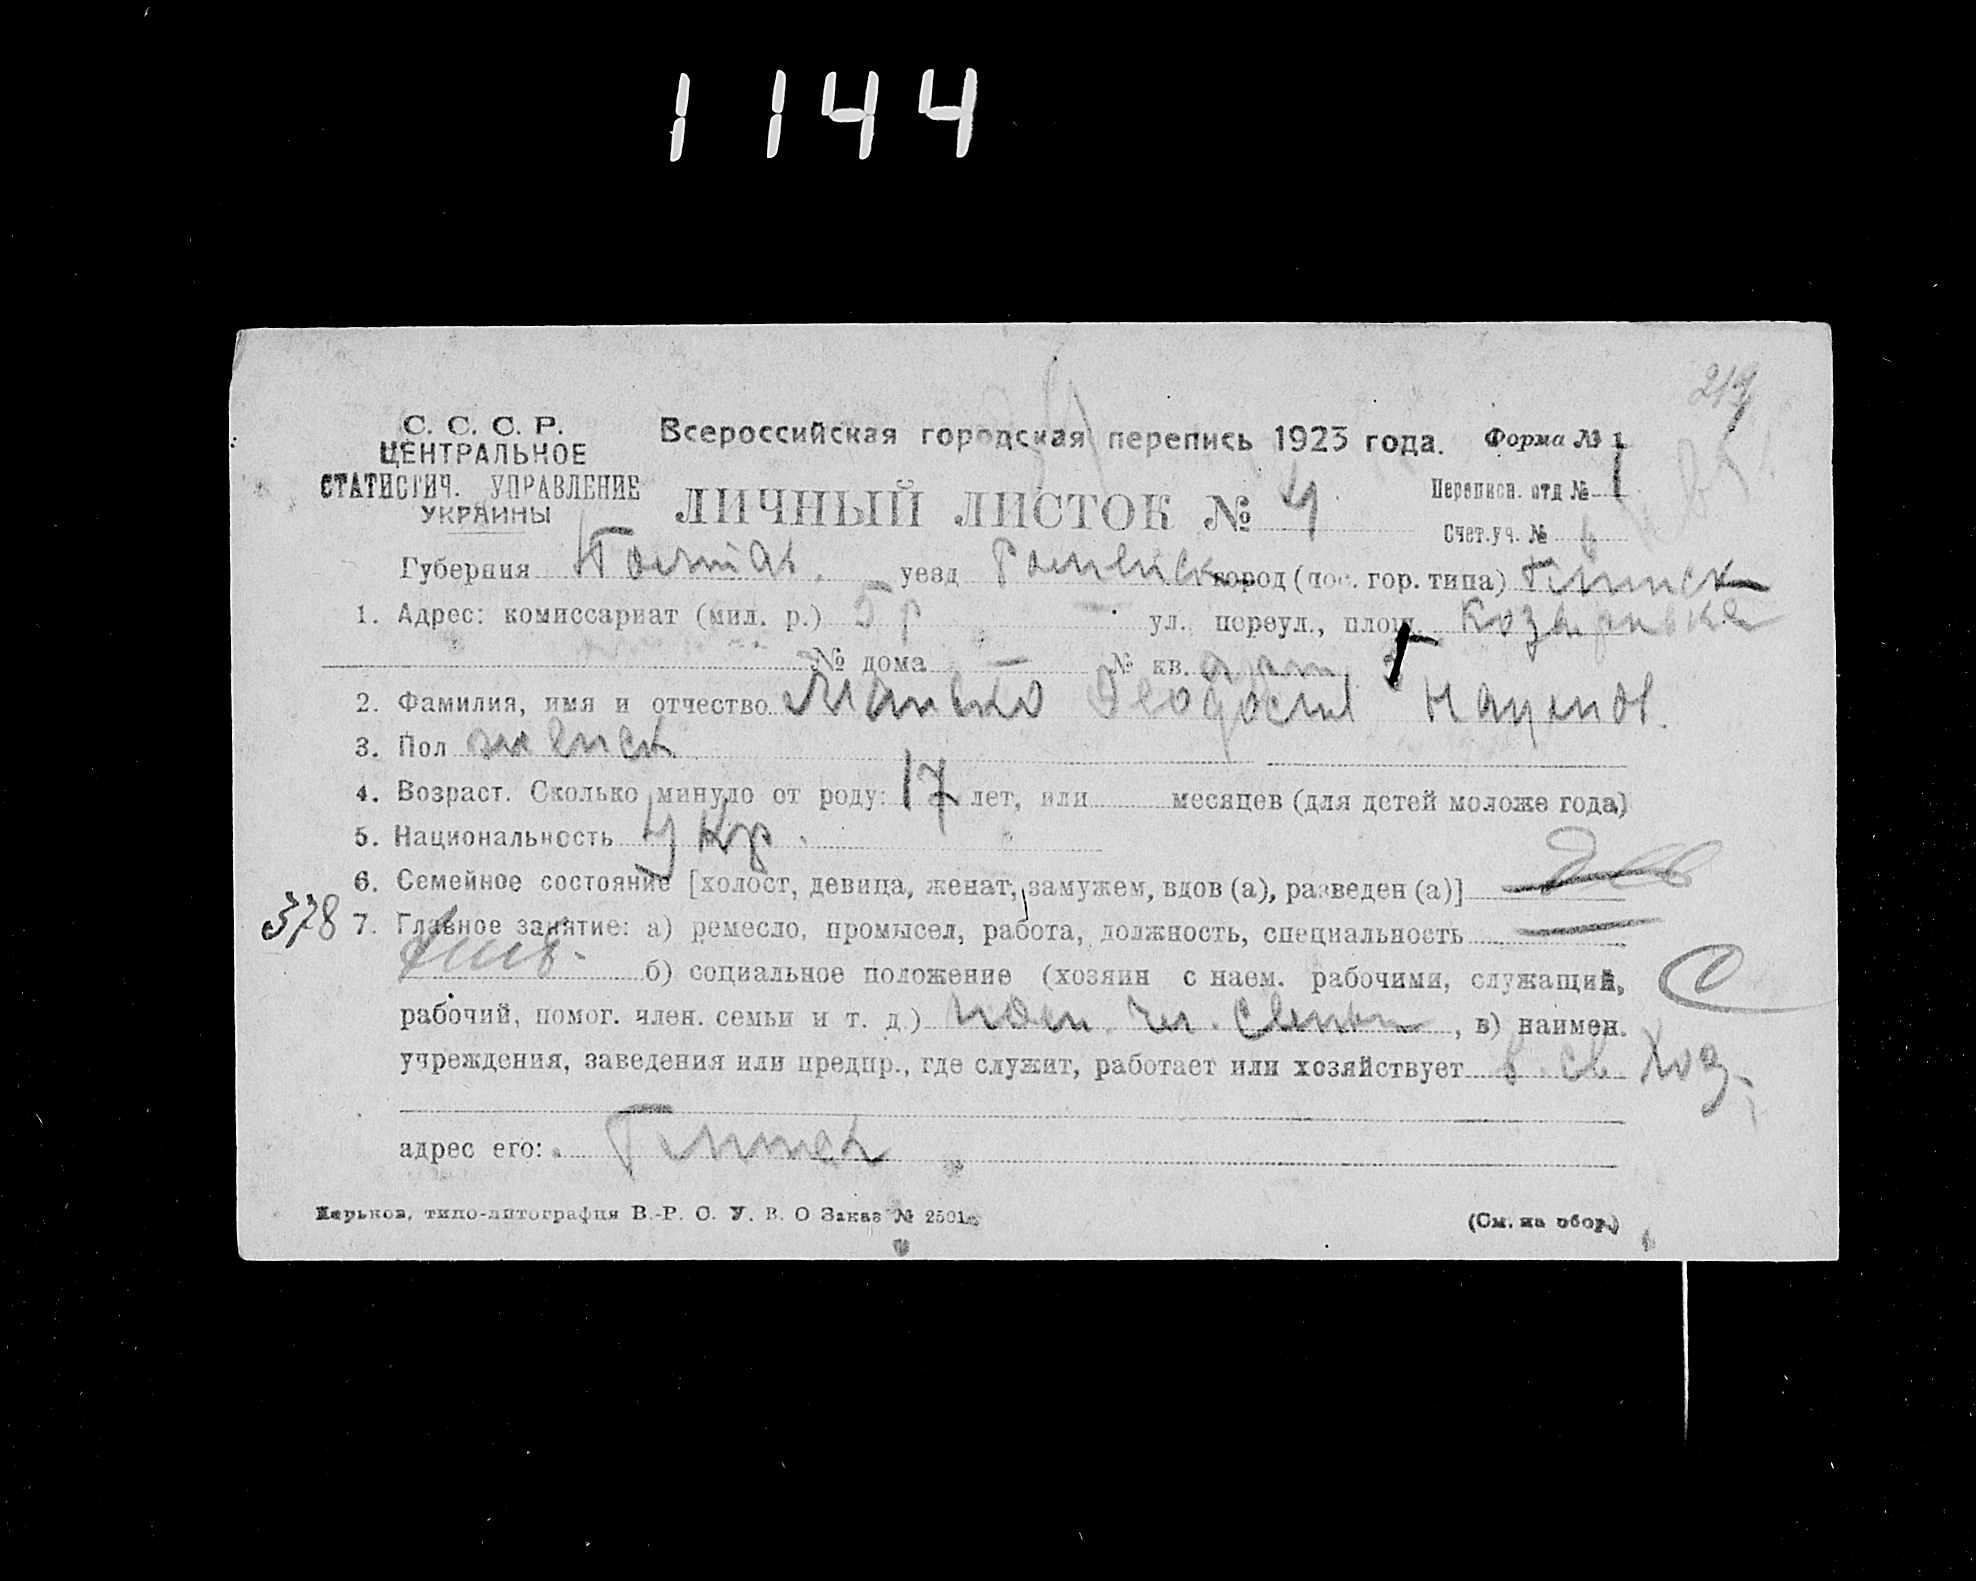 1144
219
С. С. С. Р.
ЦЕНТРАЛЬНОЕ
СТАТИСТИЧ. УПРАВЛЕНИЕ
УКРАИНЫ
Всероссийская городская перепись 1923 года. Форма № 1
ЛИЧНЫЙ ЛИСТОК № 4
Переписн. отд № 1
Счет.уч. № 6
Губерния Полтав. уезд Роменск город (пос. гор. типа) Глинск
1. Адрес: комиссариат (мил. р.) 5 р ул., переул., площ.
№ дома — № кв.
2. Фамилия, имя и отчество Манько Феодосия
3. Пол женск
4. Возраст. Сколько минуло от роду: 17 лет, или месяцев (для детей моложе года)
5. Национальность Укр.
6. Семейное состояние [холост, девица, женат, замужем, вдов (а), разведен (а)] дев
378 7. Главное занятие: а) ремесло, промысел, работа, должность, специальность —
б) социальное положение (хозяин с наем. рабочими, служащий,
рабочий, помог. член. семьи и т. д.) пом. чл. семьи, в) наимен.
учреждения, заведения или предпр., где служит, работает или хозяйствует в св. хоз.
адрес его: Глинск
Харьков, типо-литография В.-Р. С. У. В. О Заказ № 2501
(См. на обор.)